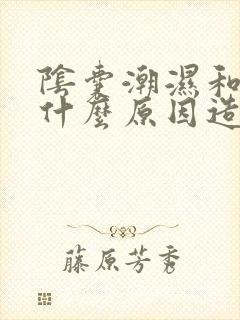 陰囊潮濕和
什麼原因造
藤原芳秀